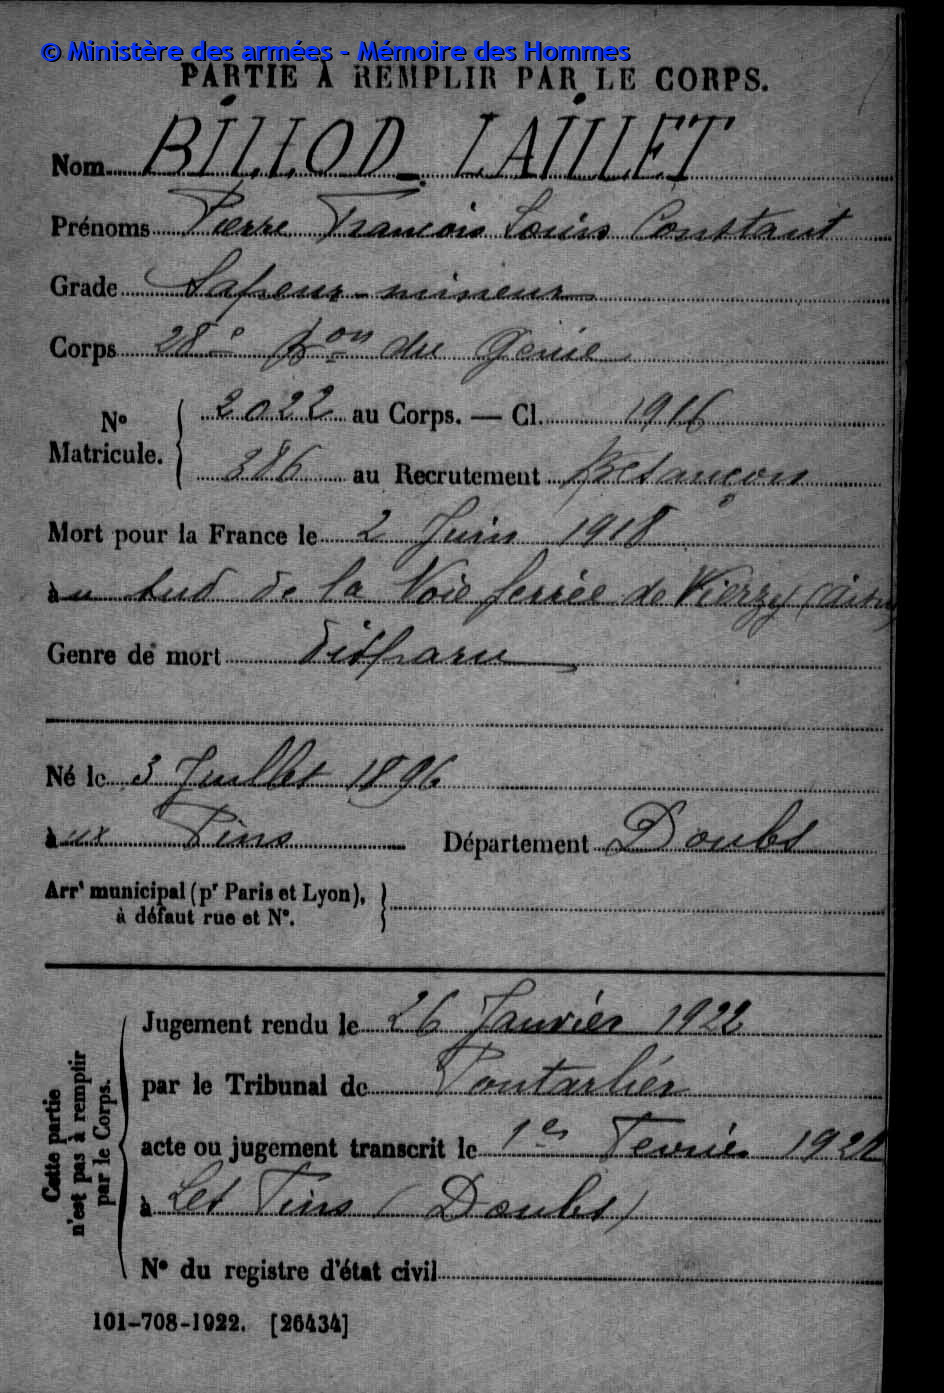 © Ministère des armées - Mémoire des Hommes
PARTIE À REMPLIR PAR LE CORPS.
Nom BILLOD-LAILLET
Prénoms Pierre François Louis Constant
Grade Sapeur-mineur
Corps 28e Bon du Génie
No Matricule. 2022 au Corps. — Cl. 1916
386 au Recrutement Besançon
Mort pour la France le 2 Juin 1918
au sud de la Voie ferrée de Vierzy (Aisne)
Genre de mort disparu
Né le 3 Juillet 1896
aux Pins Département Doubs
Arrt municipal (pr Paris et Lyon),
à défaut rue et No.
Cette partie n'est pas à remplir par le Corps.
Jugement rendu le 26 Janvier 1922
par le Tribunal de Pontarlier
acte ou jugement transcrit le 1er Fevrier 1922
à Les Pins (Doubs)
No du registre d'état civil
101-708-1922. [26434]